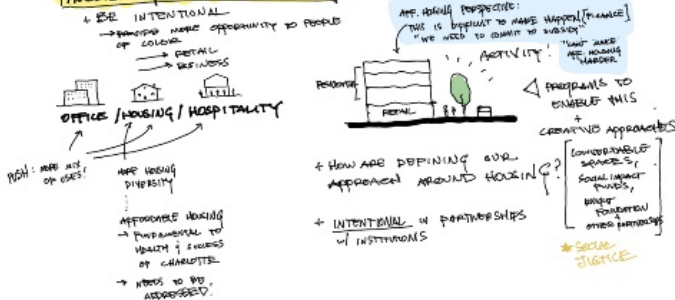 + BE INTENTIONAL
→ PROVIDE MORE OPPORTUNITY TO PEOPLE
OF COLOR
→ RETAIL
→ BUSINESS
OFFICE / HOUSING / HOSPITALITY
PUSH: MORE MIX
OF USES!
MORE HOUSING
DIVERSITY
AFFORDABLE HOUSING
→ FUNDAMENTAL TO
HEALTH & SUCCESS
OF CHARLOTTE
→ NEEDS TO BE
ADDRESSED!
AFF. HOUSING PERSPECTIVE:
THIS IS DIFFICULT TO MAKE HAPPEN [FINANCE]
"WE NEED TO COMMIT TO SUBSIDY"
"CAN'T MAKE
AFF. HOUSING
HARDER
ACTIVITY!
RESIDENTIAL
RETAIL
PROGRAMS TO
ENABLE THIS
+
CREATIVE APPROACHES
SPACES,
SOCIAL IMPACT
FUNDS,
KNIGHT
FOUNDATION
+
OTHER PARTNERSHIPS
+ HOW ARE DEFINING OUR
APPROACH AROUND HOUSING?
+ INTENTIONAL IN PARTNERSHIPS
W/ INSTITUTIONS
★ SOCIAL
JUSTICE